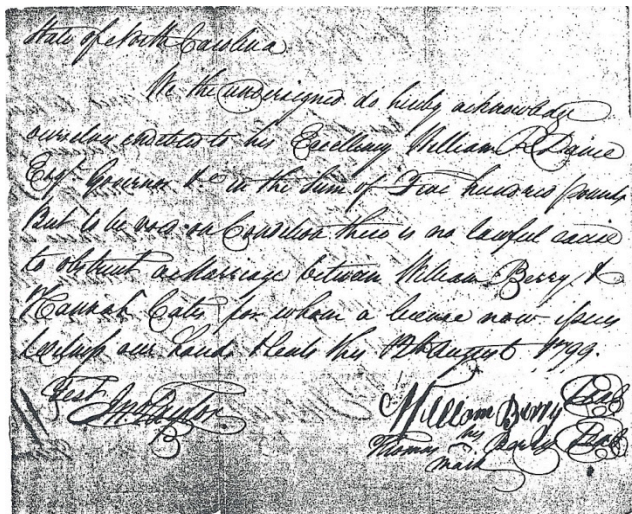 State of North Carolina
We the undersigned do hereby acknowledge
ourselves indebted to his Excellency William R Davie
Esqr. Governor &c in the Sum of Five hundred pounds
But to be void on Condition there is no lawful cause
to obstruct a Marriage between William Berry &
Hannah Cates for whom a license now issues
Witness our hands & seals this 12th August 1799.
Test
William Berry Seal
his
Thomas Seal
mark